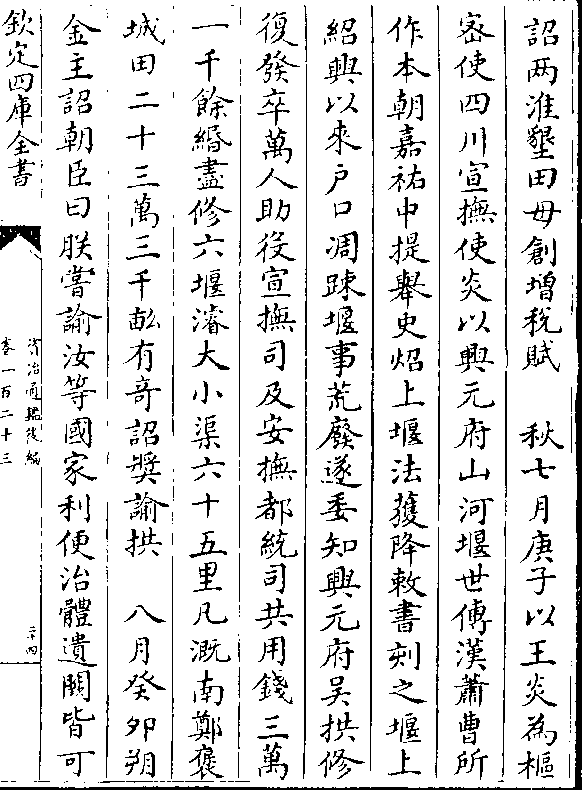 詔兩淮墾田毋創增稅賦　秋七月庚子以王炎為樞
密使四川宣撫使炎以興元府山河堰世傳漢蕭曹所
作本朝嘉祐中提舉史炤上堰法獲降敕書刻之堰上
紹興以來户口凋踈堰事荒廢遂委知興元府吴拱修
復發卒萬人助役宣撫司及安撫都統司共用錢三萬
一千餘緡盡修六堰濬大小渠六十五里凡溉南鄭褒
城田二十三萬三千畝有奇詔奬諭拱　八月癸卯朔
金主詔朝臣曰朕嘗諭汝等國家利便治體遺闕皆可
欽定四庫全書
資治通鑑後編
卷一百二十三
二十四